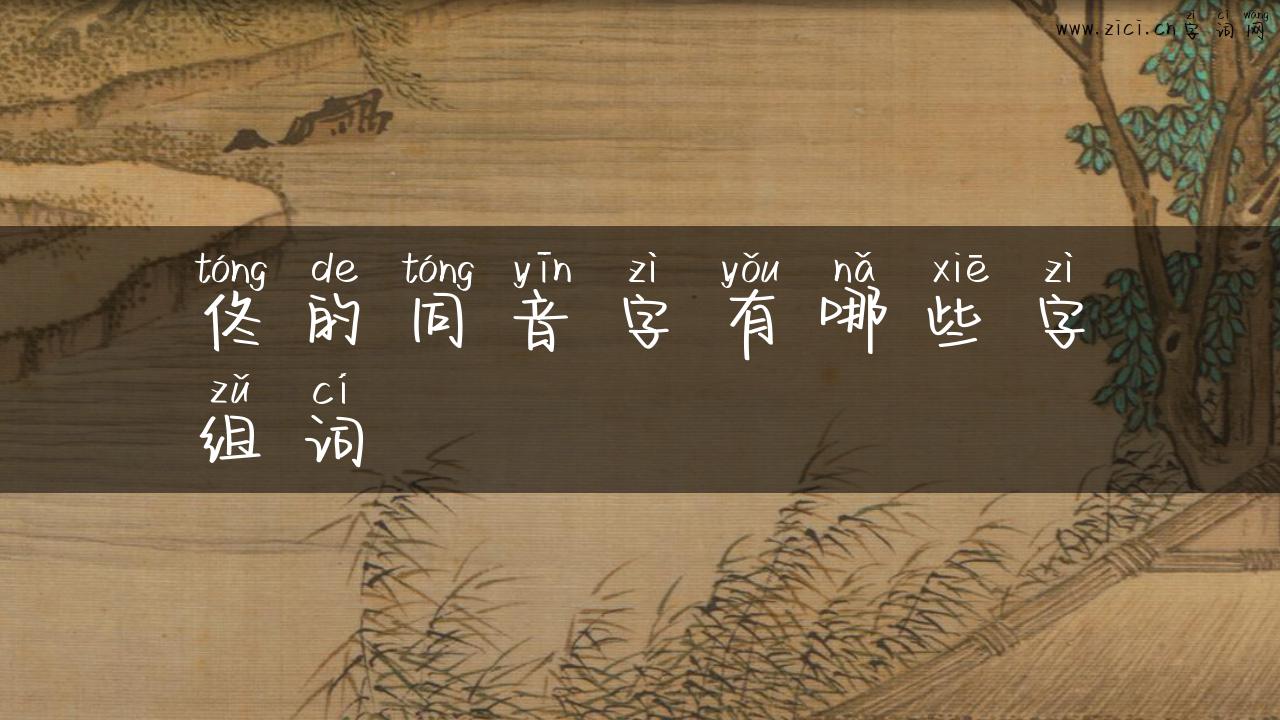 zì cí wǎng
www.zici.cn字词网
tóng de tóng yīn zì yǒu nǎ xiē zì
佟的同音字有哪些字
zǔ cí
组词